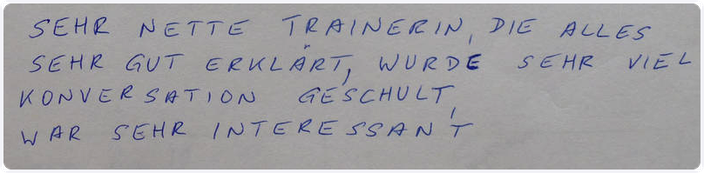 SEHR NETTE TRAINERIN, DIE ALLES
SEHR GUT ERKLÄRT, WURDE SEHR VIEL
KONVERSATION GESCHULT,
WAR SEHR INTERESSANT